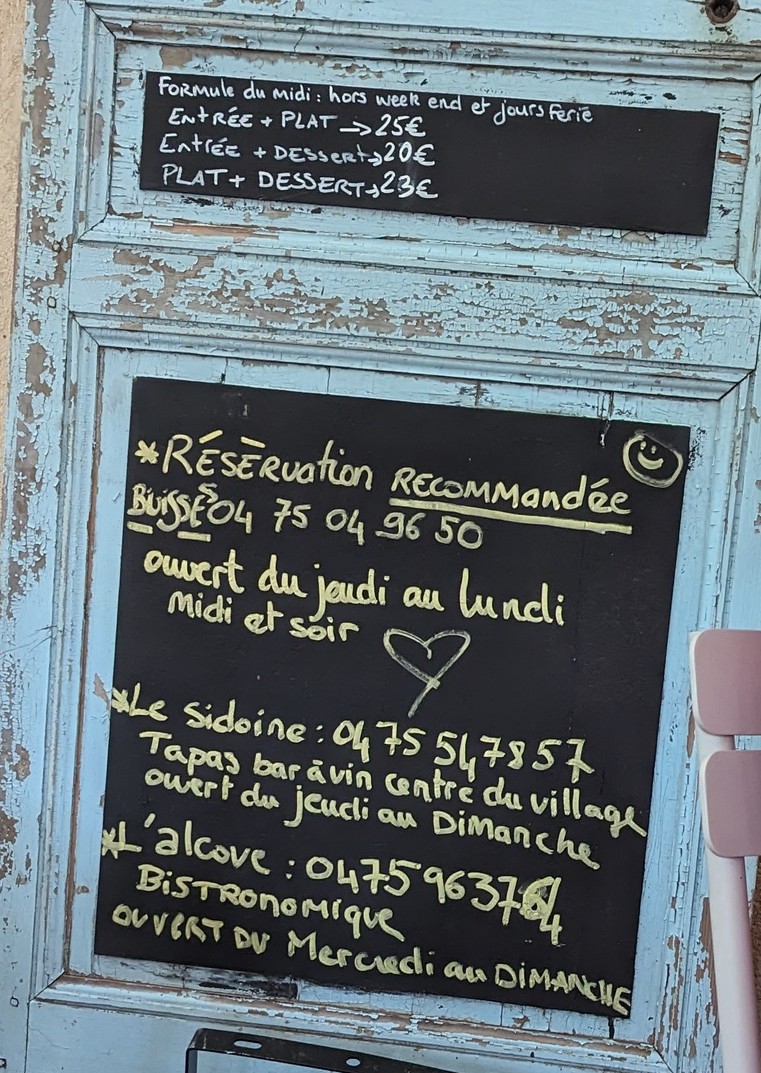 FORMULE du midi : hors week end et jours ferié
ENTRÉE + PLAT → 25€
Entrée + DESSERT → 20€
PLAT + DESSERT → 23€
*RÉSERvation RECOMMandée
BUISSES 04 75 04 96 50
ouvert du jeudi au lundi
Midi et soir
*Le Sidoine : 04 75 54 78 57
Tapas bar à vin centre du village
ouvert du jeudi au DiManche
*L'alcove : 04 75 96 37 64
BISTRONOMIQUE
OUVERT DU Mercredi au DIMANCHE